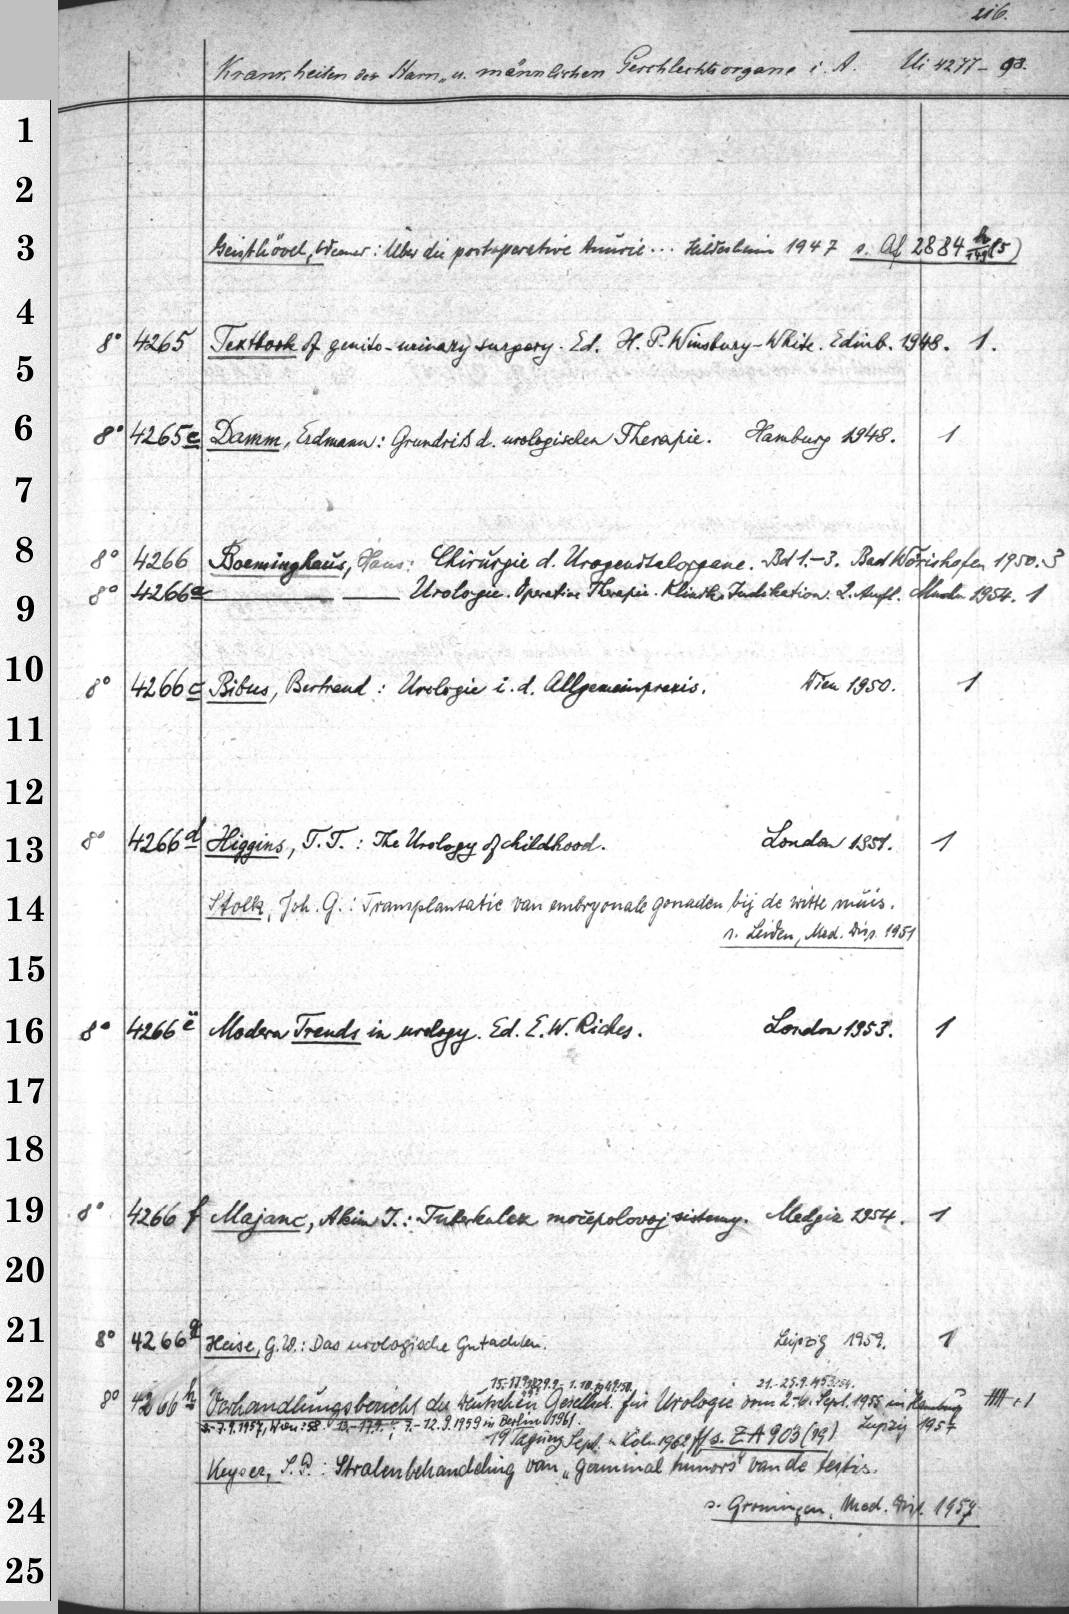 216.
Krankheiten der Harn- u. männlichen Geschlechtsorgane i. A. Ui 4277-93.
1
2
3 Geisthövel, Werner: Über die postoperative Anurie... Hildesheim 1947 s. Af 2884
4
8° 4265 Textbook of genito-urinary surgery. Ed. H. P. Winsbury-White. Edinb. 1948. 1.
5
6 8° 4265c Damm, Erdmann: Grundriß d. urologischen Therapie. Hamburg 1948. 1
7
8 8° 4266 Boeminghaus, Hans: Chirurgie d. Urogenitalorgane. Bd 1.-3. Bad Wörishofen 1950. 3
9 8° 4266a Urologie. Operative Therapie. Klinik. Indikation. 2. Aufl. 1954. 1
10 8° 4266c Bibus, Bertrand: Urologie i. d. Allgemeinpraxis. Wien 1950. 1
11
12
13 8° 4266d Higgins, T. T.: The Urology of childhood. London 1951. 1
14 Stolk, Joh. G.: Transplantatie van embryonale gonaden bij de witte muis.
s. Leiden, Med. Diss. 1951
15
16 8° 4266e Modern Trends in urology. Ed. E. W. Riches. London 1953. 1
17
18
19 8° 4266f Majanc, Akim I.: Tuberkulez močepolovoj sistemy. Medgiz 1954. 1
20
21 8° 4266g Heise, G. W.: Das urologische Gutachten. Leipzig 1959. 1
22 8° 4266h Verhandlungsbericht der Deutschen Gesellsch. für Urologie vom 2-6. Sept. 1955 in Hamburg
7.9.1957, Wien: 58. 9.-12.9.1959 in Berlin 1961. Leipzig 1957
19 Tagung Sept. in Köln 1962 ff s. ZA 903 (19)
23 Keyser, : Stralenbehandeling van „germinal tumors" van de testis.
24 s. Groningen, Med. Diss. 1957
25